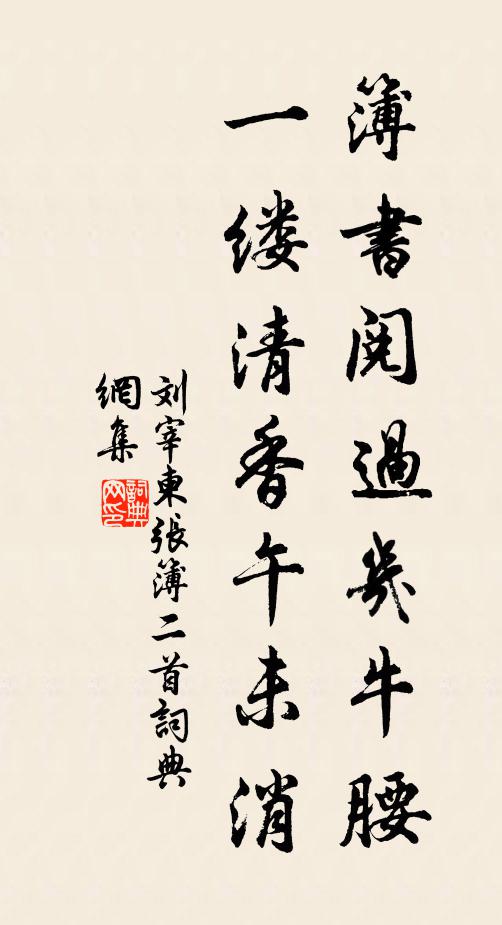 簿書閱過幾牛腰
一缕清香午未消
刘宰東張簿二首詞典
網集
詞典
网印